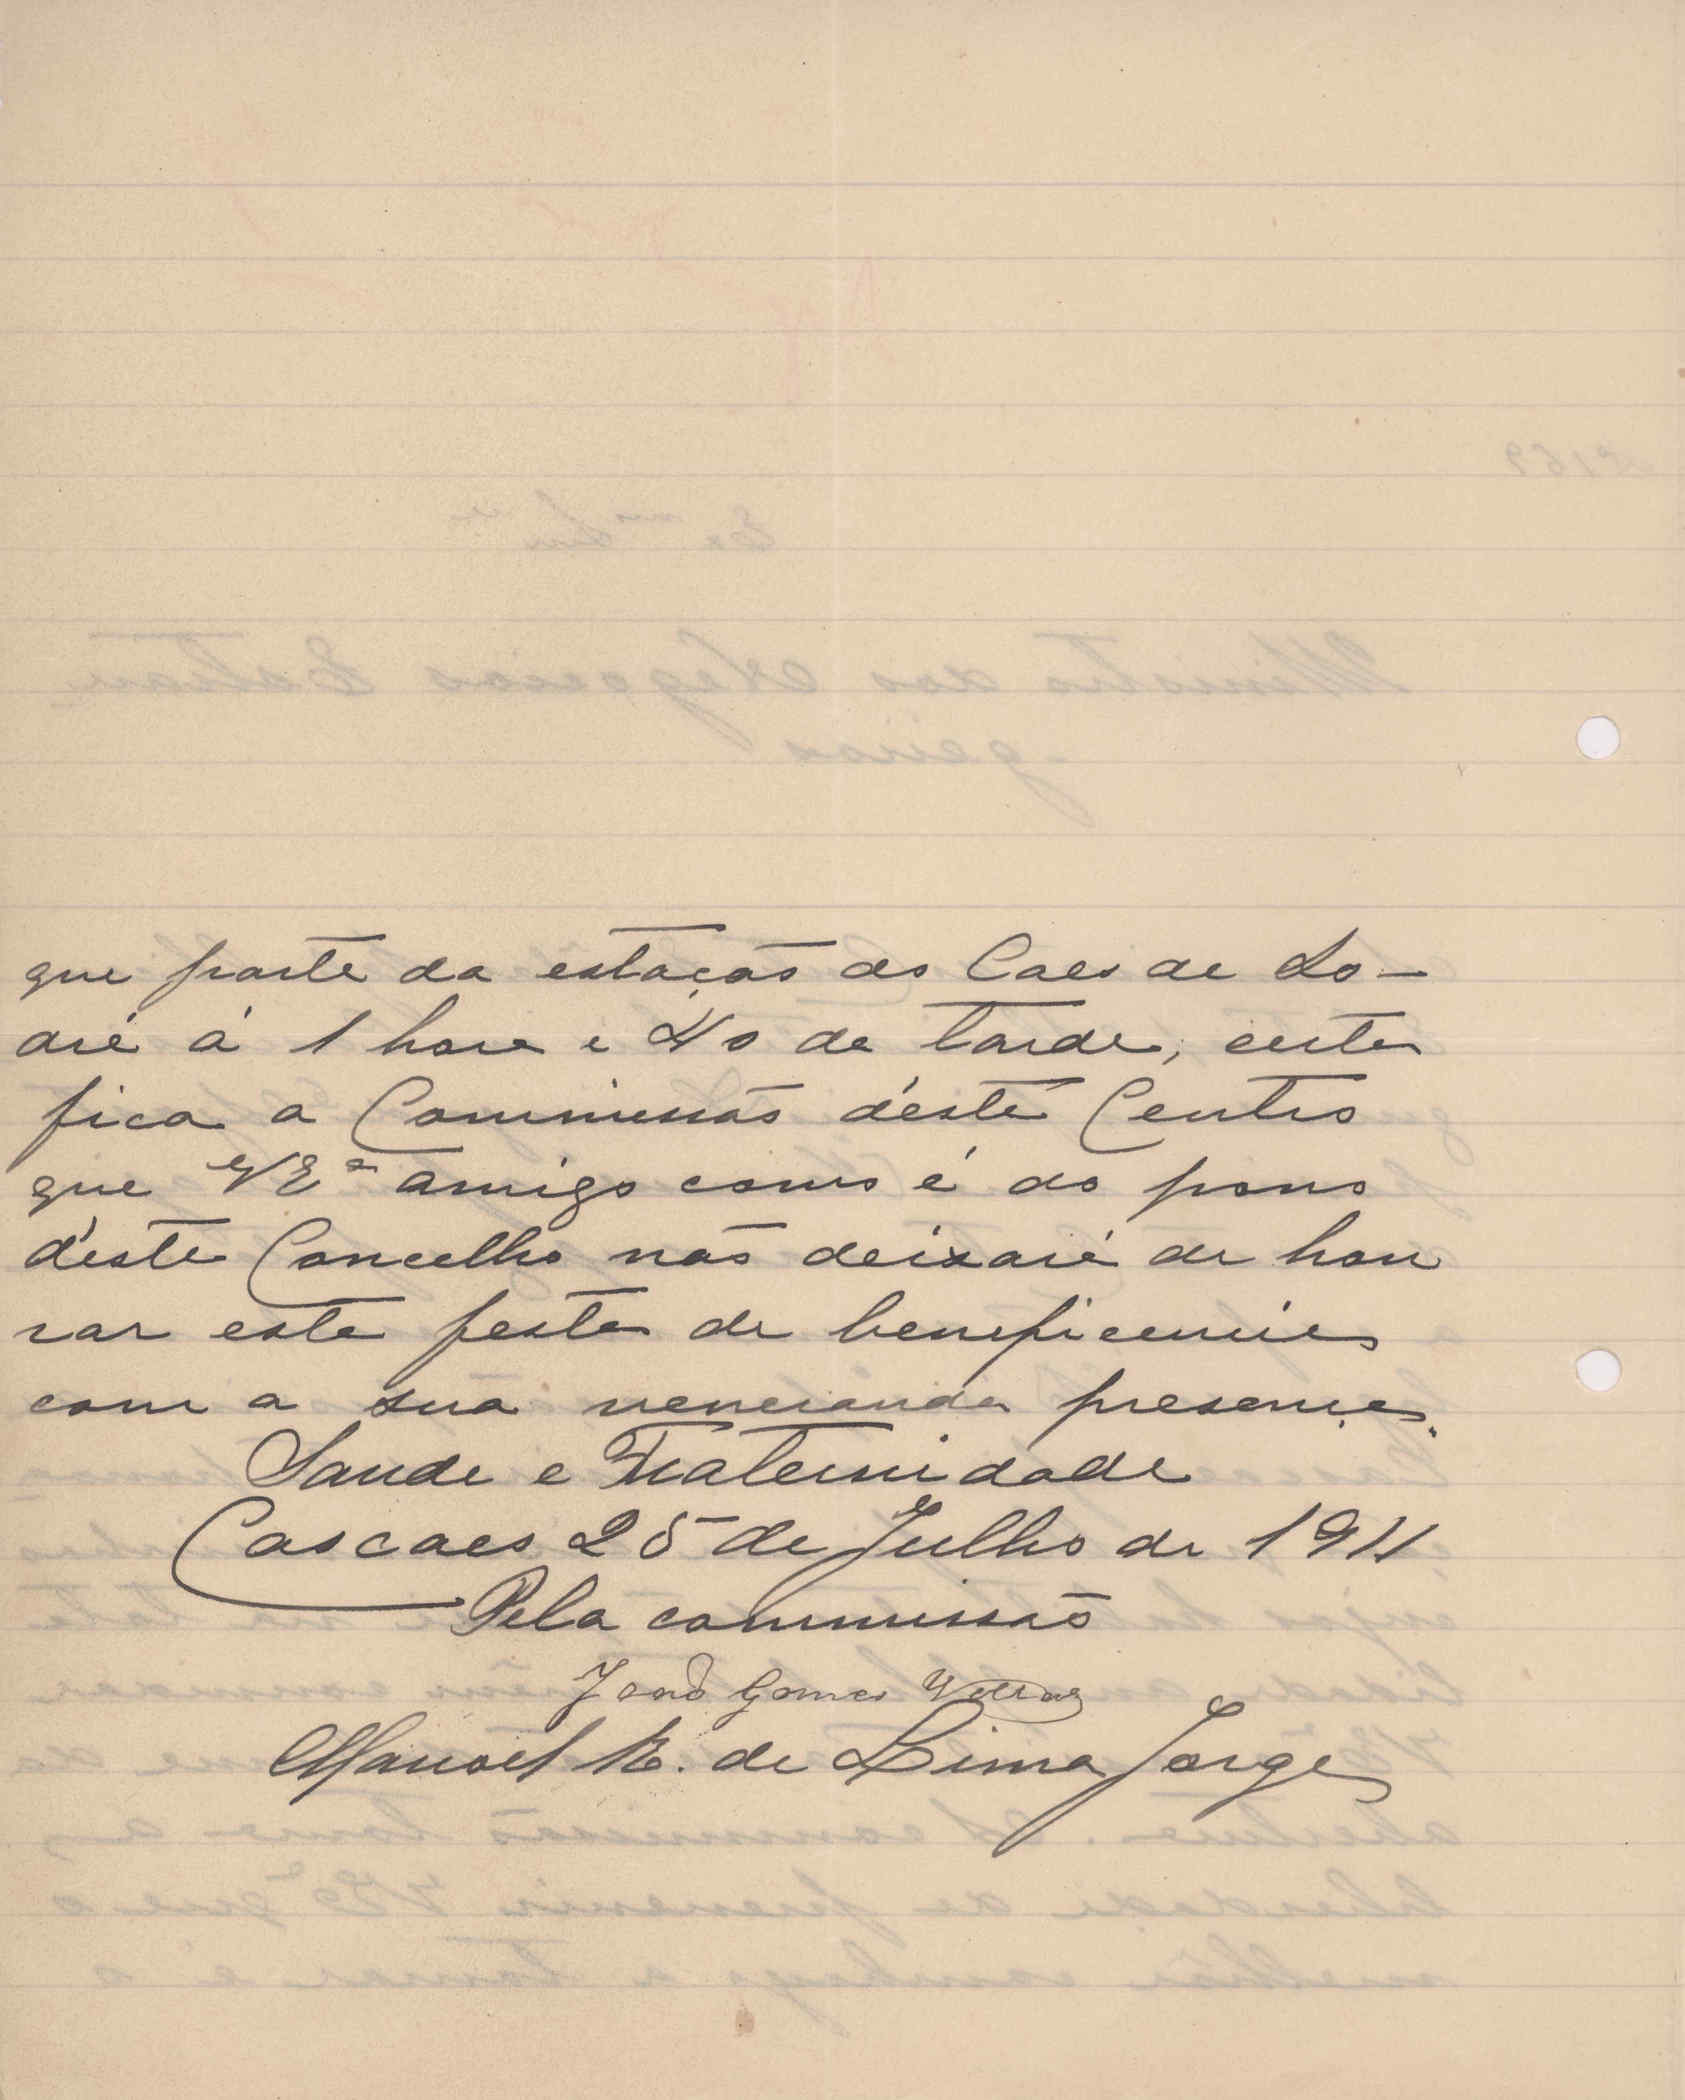 que parte da estação do Caes de So-
dré á 1 hora e 40 da tarde, certa
fica a Commissão d'este Centro
que VEª amigo como é do povo
d'este Concelho não deixará de hon
rar esta festa de beneficencia
com a sua veneranda presença.
Saude e Fraternidade
Cascaes 25 de Julho de 1911
Pela commissão
João Gomes
Manoel R. de Lima Jorge